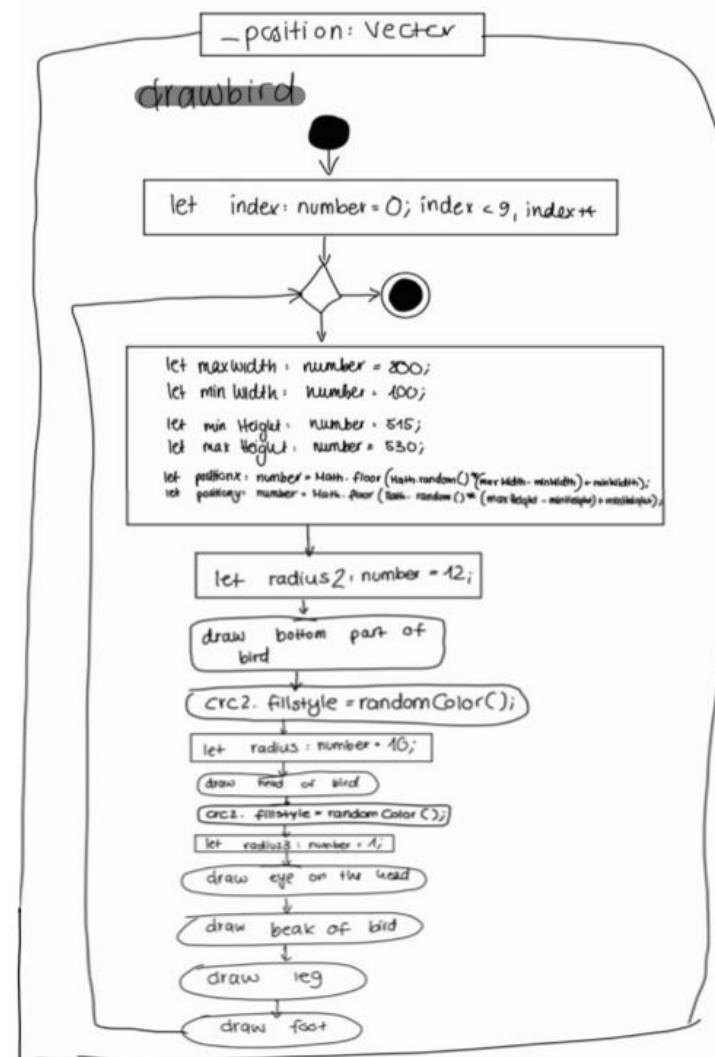 _position: Vector
drawbird
let index: number = 0; index < 9, index++
let maxwidth: number = 800;
let min Width: number = 100;
let min Height: number = 515;
let max Height: number = 530;
let positionx: number = Math.floor (Math.random() * (maxWidth - minWidth) + minWidth);
let positiony: number = Math.floor (Math.random() * (maxHeight - minHeight) + minHeight);
let radius2: number = 12;
draw bottom part of
bird
crc2. fillstyle = randomColor();
let radius: number = 10;
draw head of bird
crc2. fillstyle = random Color ();
let radius3: number = 1;
draw eye on the head
draw beak of bird
draw leg
draw foot